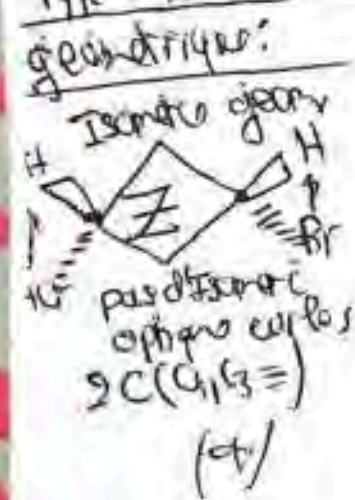 géométrique:
Isomère géom
H
H
Z
Br
pas d'Isomère
optique car les
2C (C1, C3 =)